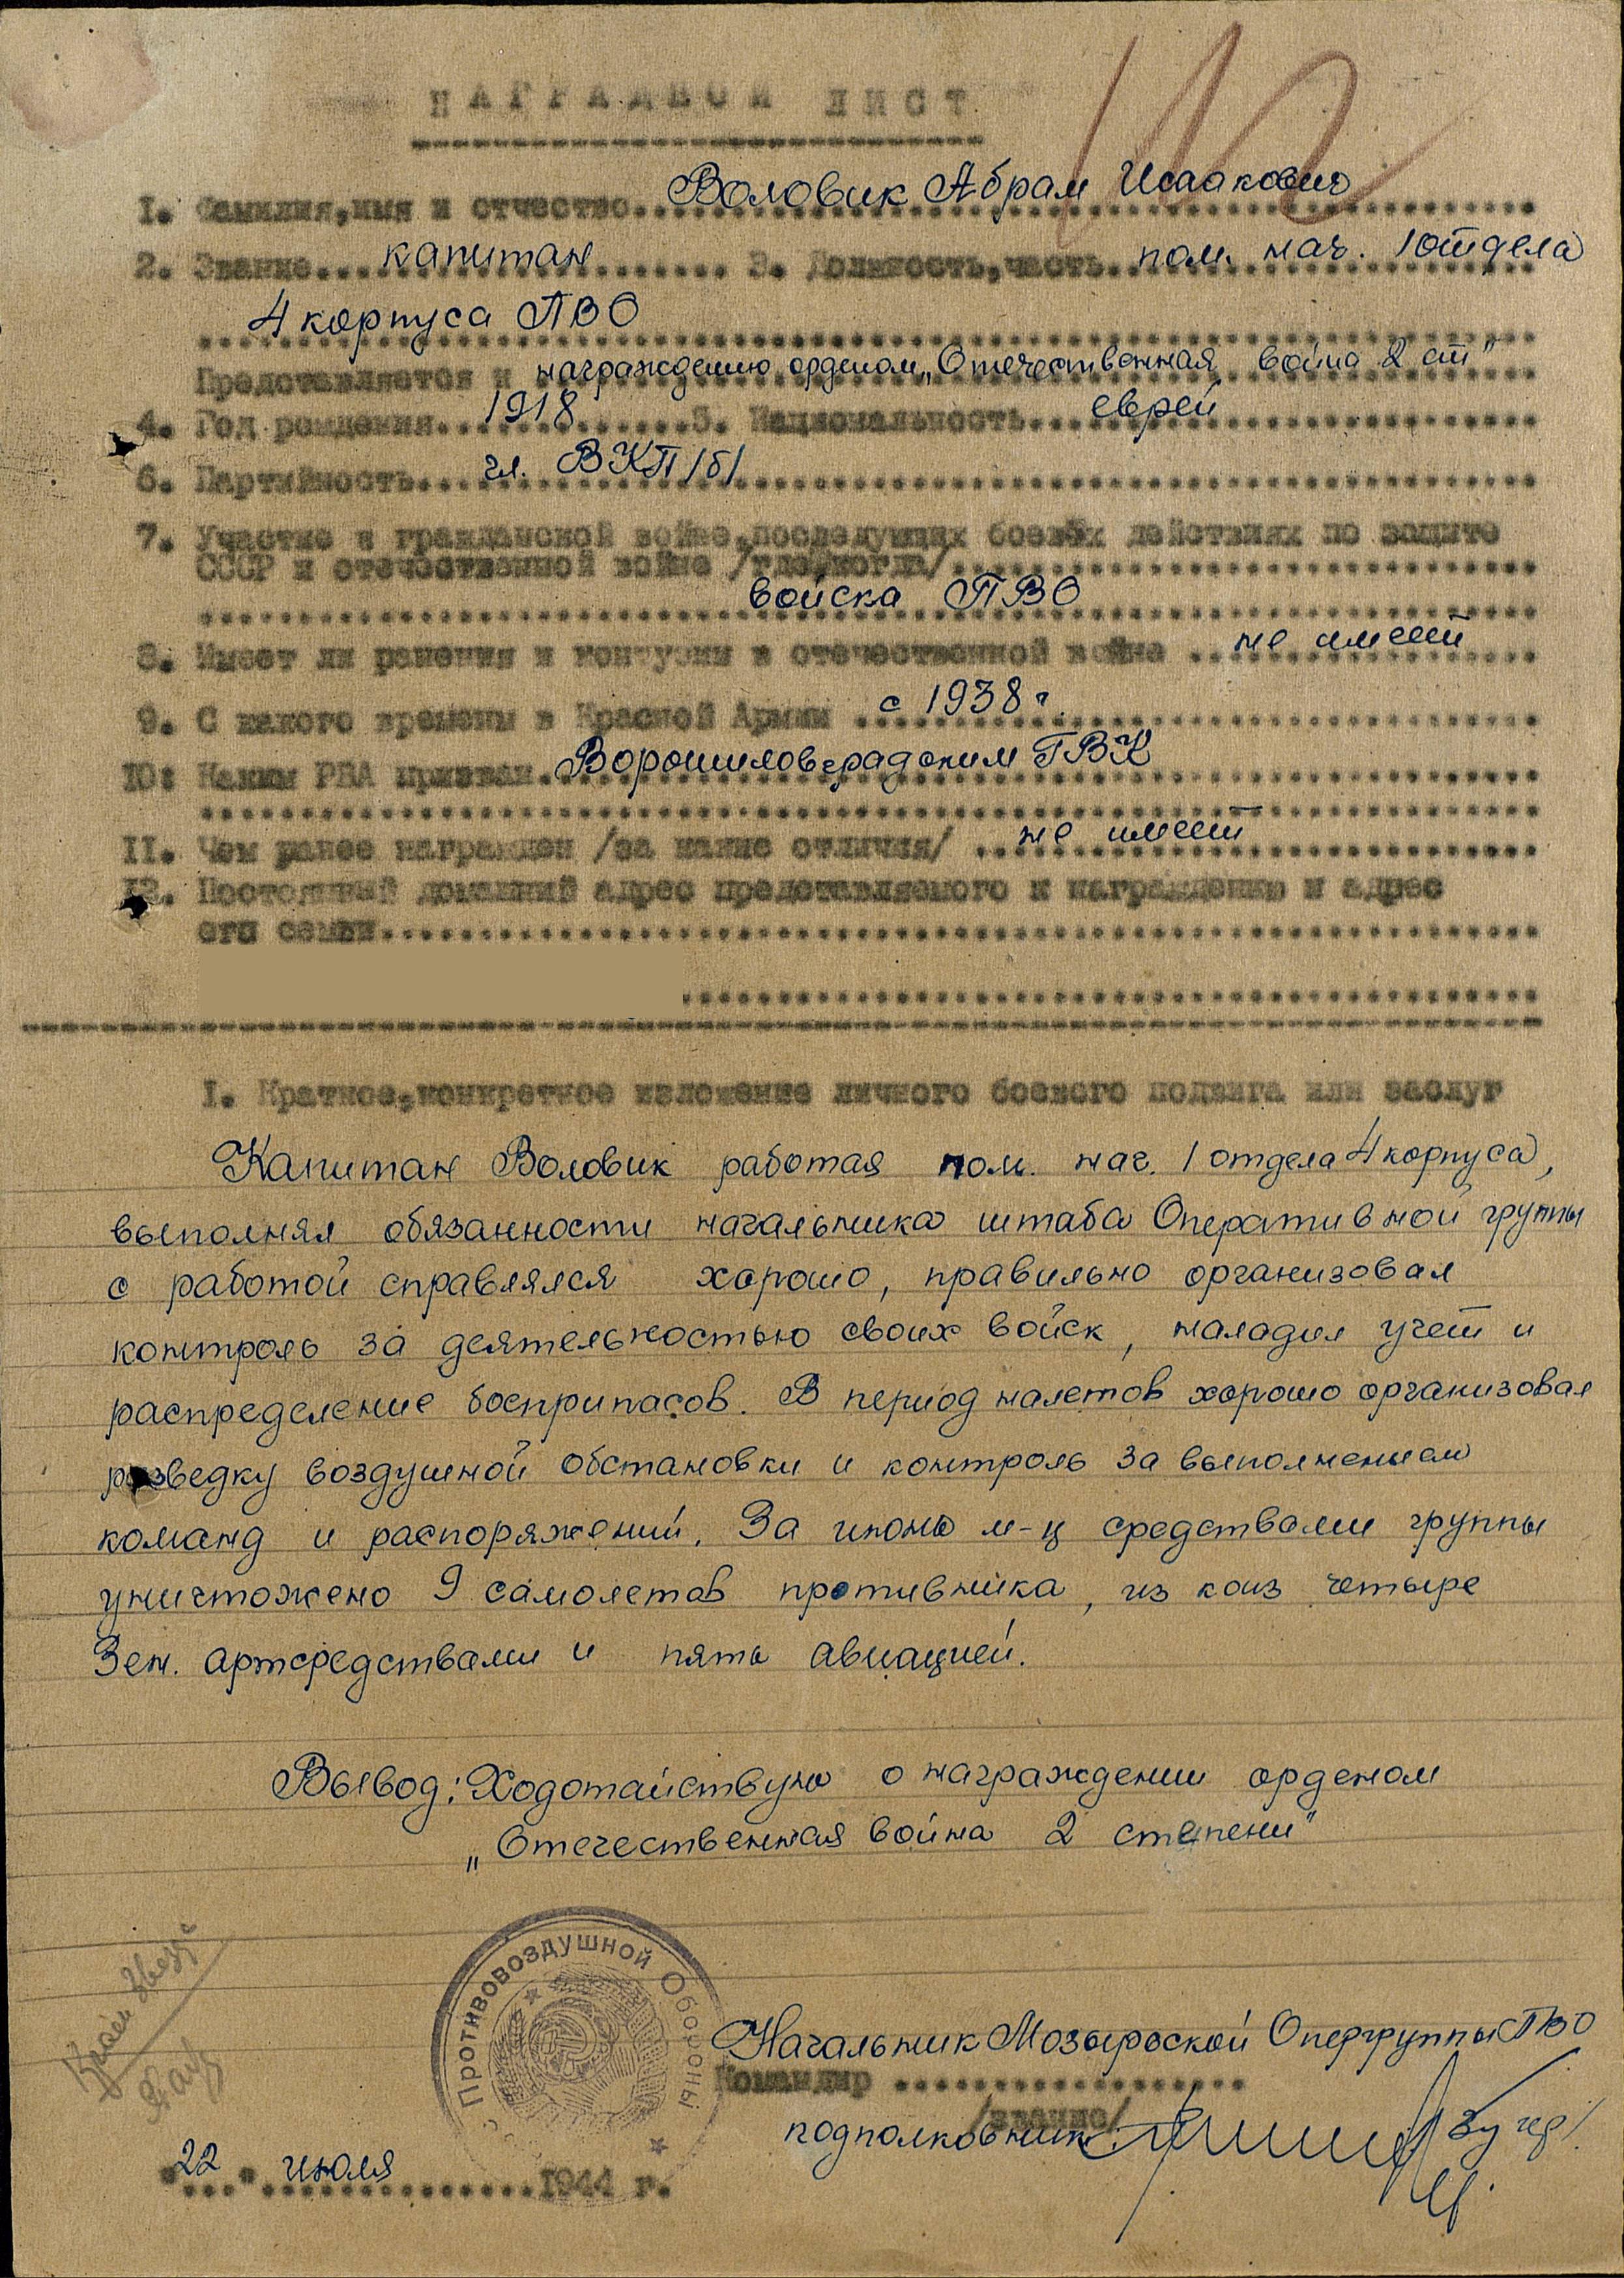 НАГРАДНОЙ ЛИСТ
I. Фамилия,имя и отчество Воловик Абрам Исаакович
2. Звание капитан 3. Должность,часть пом. нач. 1 отдела
4 корпуса ПВО
Представляется к награждению орденом „Отечественная война 2 ст"
4. Год рождения 1918 5. Национальность еврей
6. Партийность чл. ВКП/б/
7. Участие в гражданской войне,последующих боевых действиях по защите
СССР и отечественной войне /где,когда/
войска ПВО
8. Имеет ли ранения и контузии в отечественной войне не имеет
9. С какого времени в Красной Армии с 1938 г.
10: Каким РВК призван Ворошиловградским ГВК
II. Чем ранее награжден /за какие отличия/ не имеет
12. Постоянный домашний адрес представляемого к награждению и адрес
его семьи
I. Краткое,конкретное изложение личного боевого подвига или заслуг
Капитан Воловик работая пом. нач. 1 отдела 4 корпуса,
выполнял обязанности начальника штаба Оперативной группы
с работой справлялся хорошо, правильно организовал
контроль за деятельностью своих войск, наладил учет и
распределение боеприпасов. В период налетов хорошо организовал
разведку воздушной обстановки и контроль за выполнением
команд и распоряжений. За июнь м-ц средствами группы
уничтожено 9 самолетов противника, из коих четыре
Зен. артсредствами и пять авиацией.
Вывод: Ходотайствую о награждении орденом
„Отечественная война 2 степени"
Красн Звезд
Противовоздушной Обороны
Начальник Мозырьской Опергруппы ПВО
Командир
/звание/
подполковник
"22" июля 1944 г.